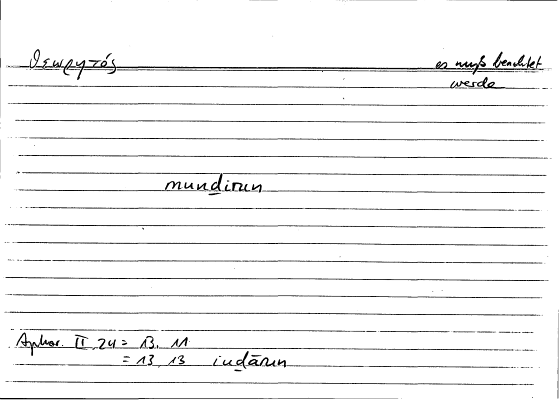 θεωρητός es muß beachtet
werde
munḏirun
Aphor. II 24 = 13, 11
= 13, 13 inḏārun